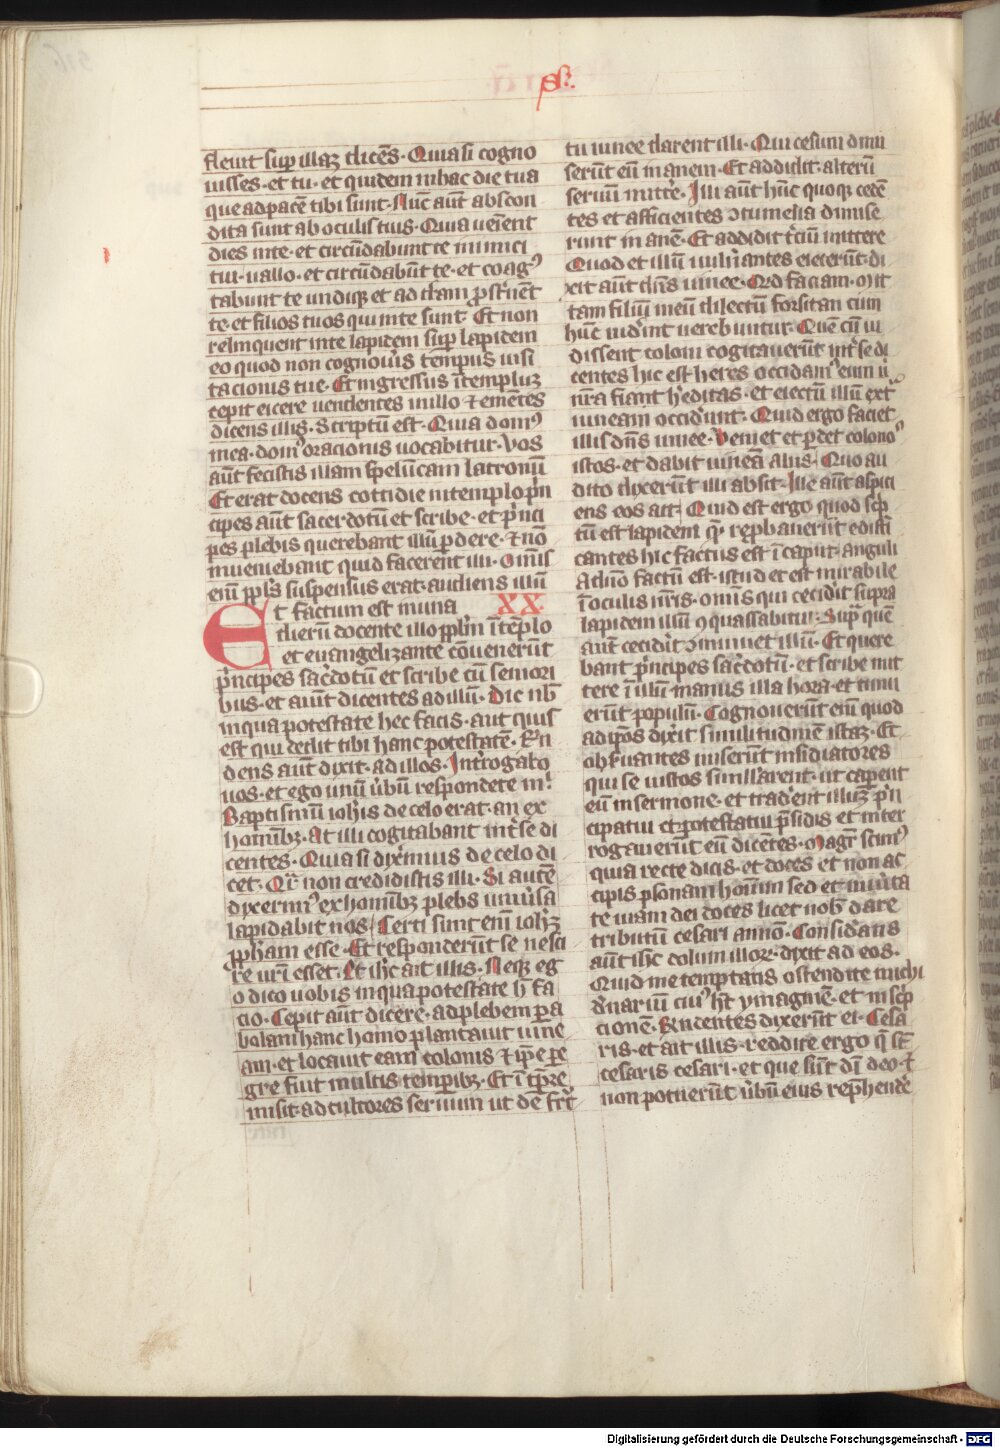 fleuit sup̱ illaꝫ dicēs. Quia si cogno
uisses. et tu. et quidem in hac die tua
que ad pacē tibi sunt. Nūc aūt abscon
dita sunt ab oculis tuis. Quia ueīent
dies in te. et circūdabunt te inimici
tui. uallo. et circūdabūnt te. et coagꝰ
tabunt te undiqꝫ et ad t̄ram ꝓst̄nēt
te. et filios tuos qui in te sunt. Et non
relinquent in te lapidem sup̱ lapidem
eo quod non cognou̇is tempus uisi
tacionis tue. Et ingressus ī templuꝫ
cepit eicere uendentes in illo ⁊ emētes
dicens illis. Scriptūm est. Quia domꝰ
mea. domꝰ oracionis uocabitur. Vos
aūt fecistis illam spelūcam latronūm
Et erat docens cottidie in templo. p̄n
cipes aūt sacerdotūm et scribe. et p̄nci
pes plebis querebant illūm ꝑdere. ⁊ nō
inueniebant quid facerent illi. Om̄is
enī ppl̄s suspensus erat. audiens illūm
Et factum est in una XX.
dierū docente illo ppl̄m ī tēplo
et euangelizante cōuenerūt
p̄ncipes sac̄dotūm et scribe cū seniori
bus. et aiunt dicentes ad illūm. Dic nob̄
in qua potestate hec facis. aut quis
est qui dedit tibi hanc potestatē. R̄n
dens aūt dixit. ad illos. Int̄rogabo
uos. et ego unū u̇bū respondete ṁ.
Baptismūm ioh̄is de celo erat. an ex
hominib̄ꝫ. At illi cogitabant int̄ se di
centes. Quia si dix̄imus de celo di
cet. Qr̄ non credidistis illi. Si autē
dixerimꝰ ex hominibꝫ plebs uniu̇sa
lapidabit nos. Certi sunt enī ioh̄eꝫ
ꝓpham esse. Et responderūt se nesci
re un̄ esset. Et ih̄c ait illis. Neqꝫ eg
o dico uobis in qua potestate h̄ fa
cio. Cepit aūt dicere. ad plebem ꝑa
bolam hanc homo plantauit uine
am. et locauit eam colonis ⁊ ip̄e ꝑe
gre fuit multis temporibꝫ. Et ī tp̄re
misit. ad cultores seruum ut de fr̄c
tu uinee darent illi. Qui cesum dimi
serūt eū in anem. Et addidit. alterū
seruūm mitt̄e. Illi aūt hūc quoqꝫ cedē
tes et afficientes ↄtumelia dimise
runt in anē. Et addidit t̄ciū mittere
Quod et illūm uuln̄antes eiecerūt. di
xit aūt dn̄s uinee. Qid faciam. Mit
tam filiūm meūm dilectūm forsitan cum
hūc uid̄int uerebuntur. Quē cū ui
dissent coloni cogitauerūt int̄ se di
centes hic est heres occidamꝰ eum ū
nr̄a fiant h̄editas. et eiectū illū ext̄
uineam occid̄unt. Quid ergo faciet
illis dn̄s uinee. Veniet et ꝑdet colonoˢ
istos. et dabit uineā aliis. Quo au
dito dixerūt illi absit. Ille aūt aspici
ens eos ait. Quid est ergo quod sc̄p
tū est lapidem q̄. rep̱bauerūt edifi
cantes hic factus est ī caput anguli
A dn̄o factū est. istud et est mirabile
ī oculis nr̄is. Omīs qui cecid̄it supra
lapidem illūm ꝯquassabitur. Sup̱ quē
aūt cecid̄it ↄminuet illūm. Et quere
bant p̄ncipes sac̄dotūm. et scribe mit
tere ī illūm manus illa hora. et timu
erūt populūm. Cognouerūt enī quod
ad ip̄os dixit similitudinē istaꝫ. Et
obs̄uantes miserūt insidiatores
qui se iustos simil̄arent. ut cap̱ent
eū in sermone. et trad̄ent illuꝫ p̄n
cipatui et potestatui p̄sidis et inter
rogauerūt eū dicētes. Magr̄ scimꝰ
quia recte dicis. et doces et non ac
cipis ꝑsonam hoīm sed et in ūita
te uiam dei doces licet nob̄ dare
tributūm cesari an nō. Consid̄ans
aūt ih̄c dolum illoꝝ. dixit ad eos.
Quid me temptatis ostendite michi
d̄nariūm cuiꝰ h̄t ymaginē. et insc̄p
cionē. R̄ndentes dixerūt ei. Cesa
ris. et ait illis. reddite ergo q̄ sū̄t
cesaris cesari. et que sūt dī deo. ⁊
non potuerūt u̇būm eius rep̱hend̄e